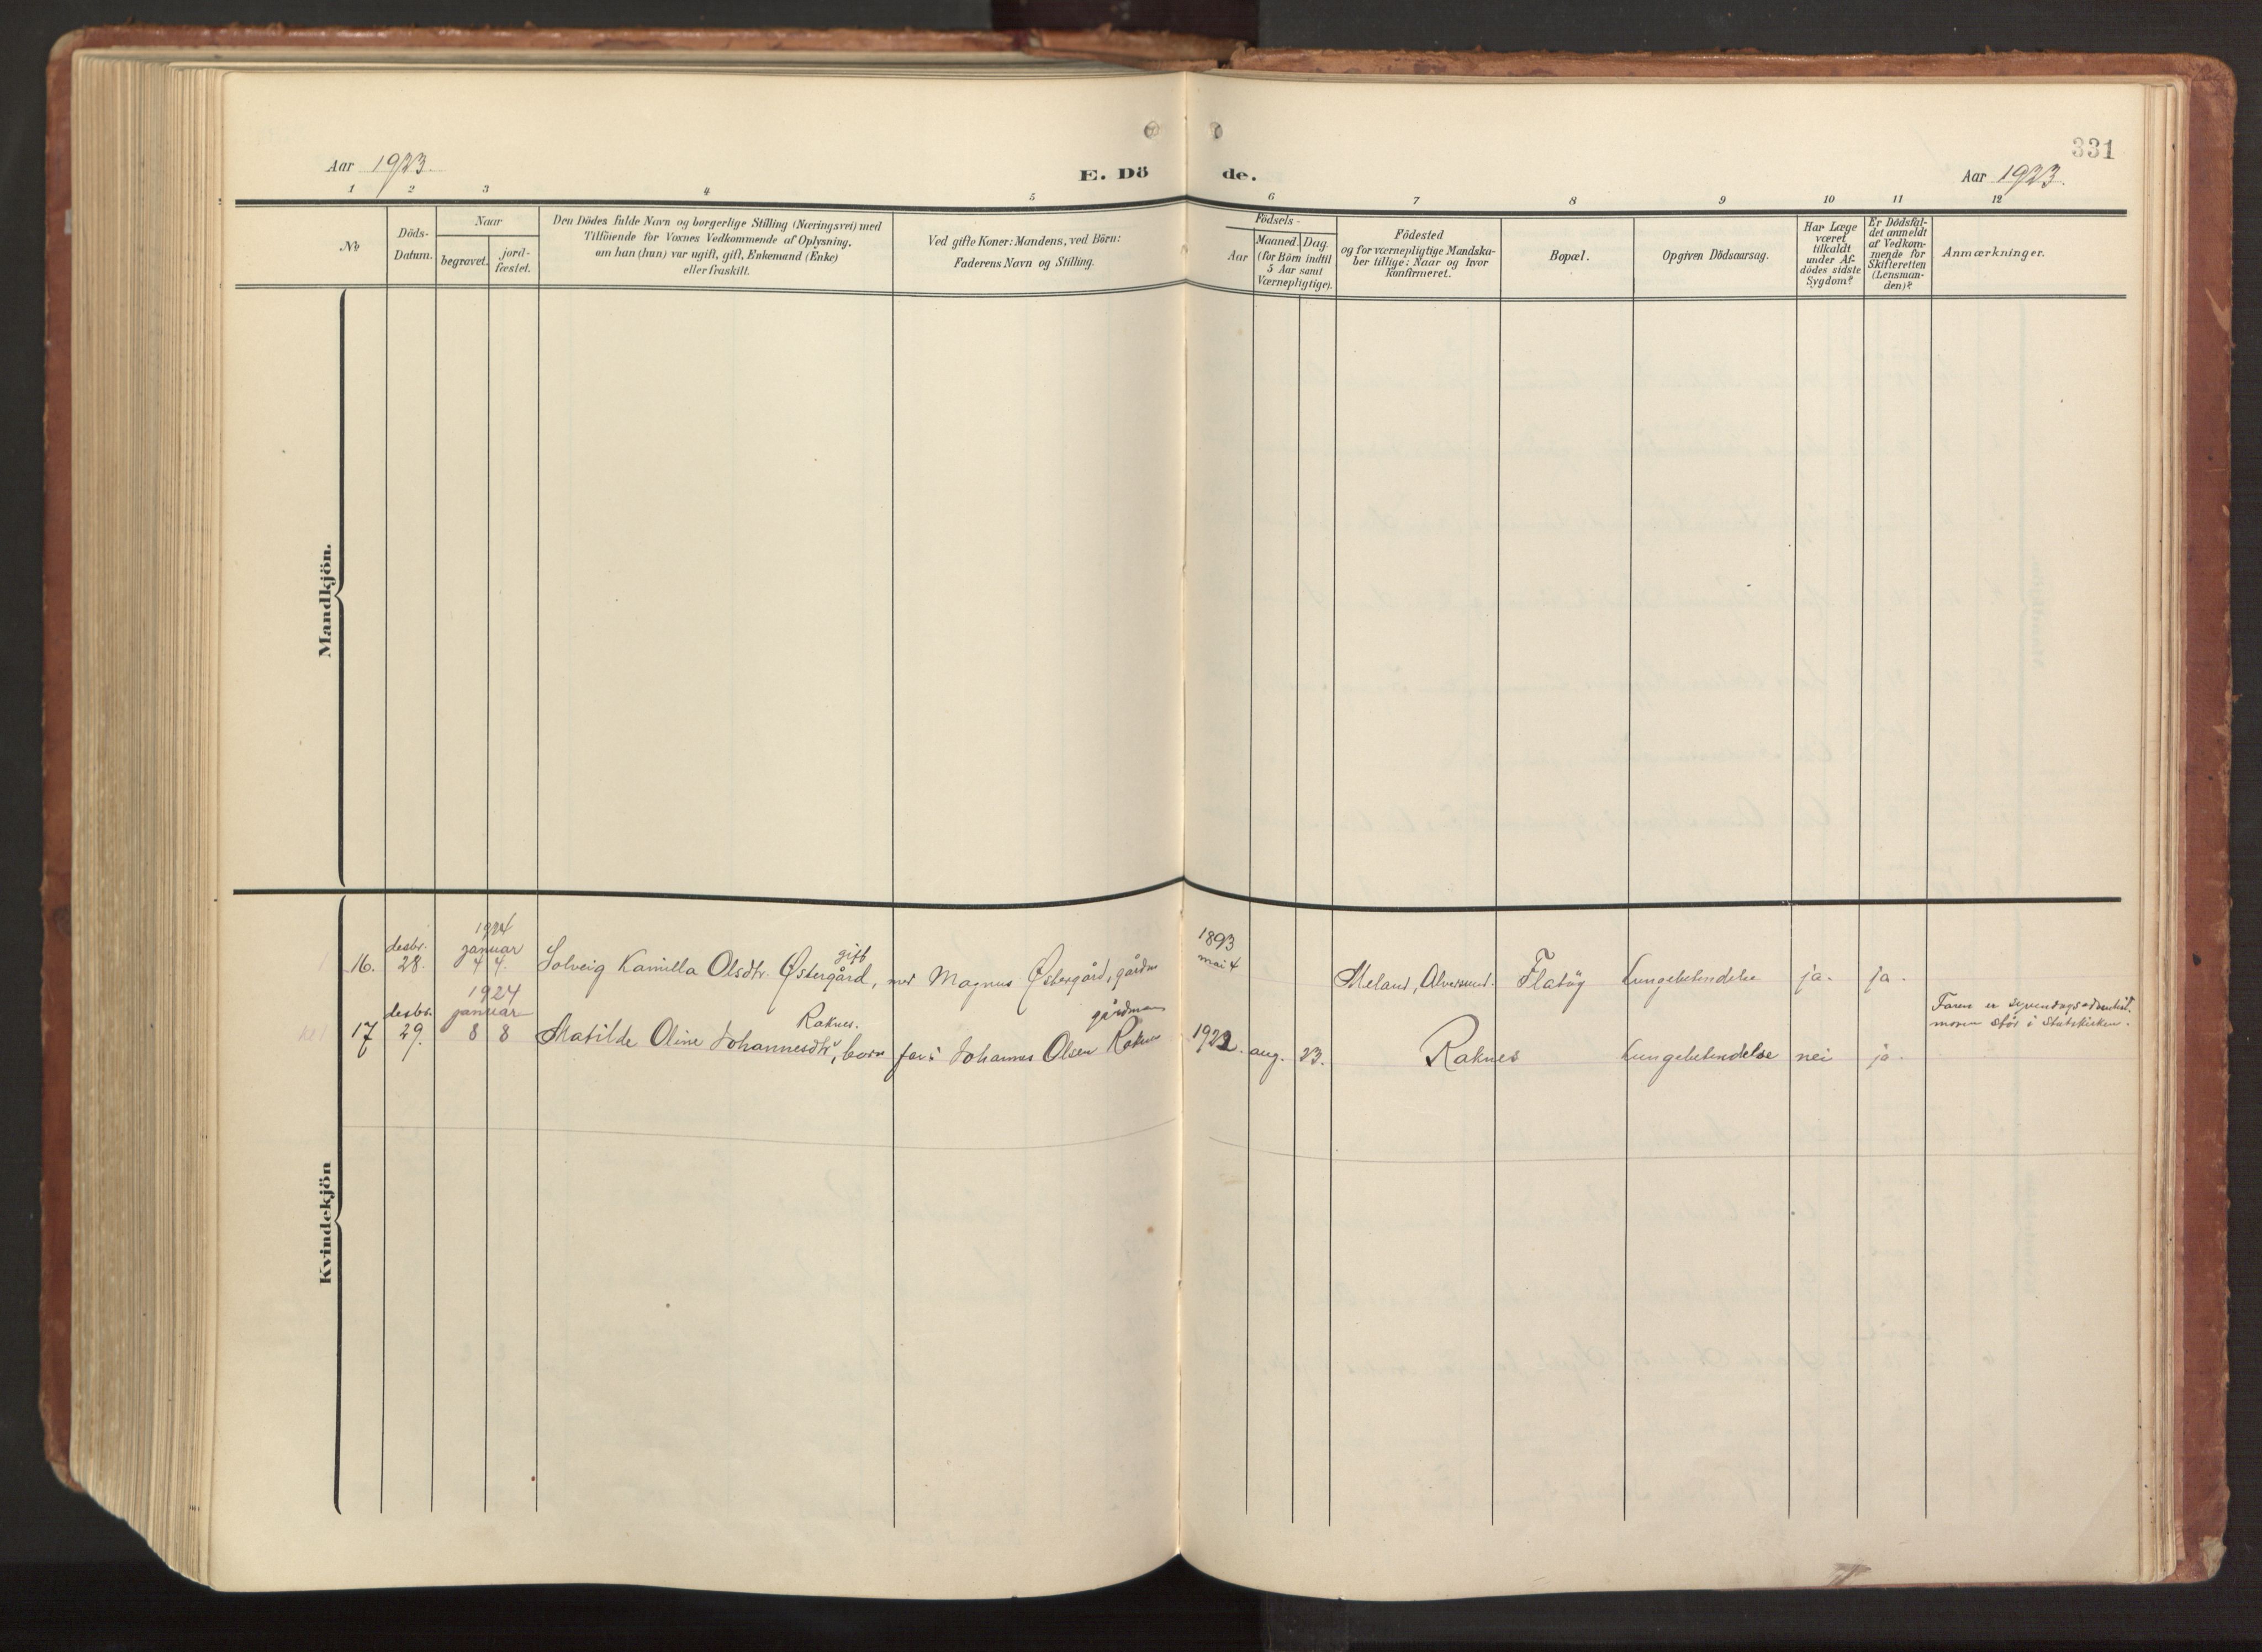 331
Aar 1923.
E. Dö
de.
Aar 1923.
1 2 3 4 5 6 7 8 9 10 11 12
№
Döds-
Datum.
Naar
begravet.
jord-
fæstet.
Den Dödes fulde Navn og borgerlige Stilling (Næringsvei) med
Tilföiende for Voxnes Vedkommende af Oplysning,
om han (hun) var ugift, gift, Enkemand (Enke)
eller fraskilt.
Ved gifte Koner: Mandens, ved Börn:
Faderens Navn og Stilling.
Födsels-
Aar
Maaned.
Dag.
(for Börn indtil
5 Aar samt
Værnepligtige).
Födested
og for værnepligtige Mandska-
ber tillige: Naar og hvor
konfirmeret.
Bopæl.
Opgiven Dödsaarsag.
Har Læge
været
tilkaldt
under Af-
dödes sidste
Sygdom?
Er Dödsfal-
det anmeldt
af Vedkom-
mende for
Skifteretten
(Lensman-
den)?
Anmærkninger.
Mandkjön.
Kvindekjön
1924
desbr. januar gift 1893
16. 28. 4 4. Solveig Kamilla Olsdtr. Østergård, med Magnus Østergård, gårdm mai 4 Meland, Alversund. Flatöy Lungebetendelse ja. ja.
1924
desbr. januar Raknes. gårdman Faren er syvendagsadventist.
moren står i Statskirken.
17 29. 8 8 Matilde Oline Johannesdtr, barn far: Johannes Olsen Raknes 1922. aug. 23. Raknes Lungebetendelse nei ja.